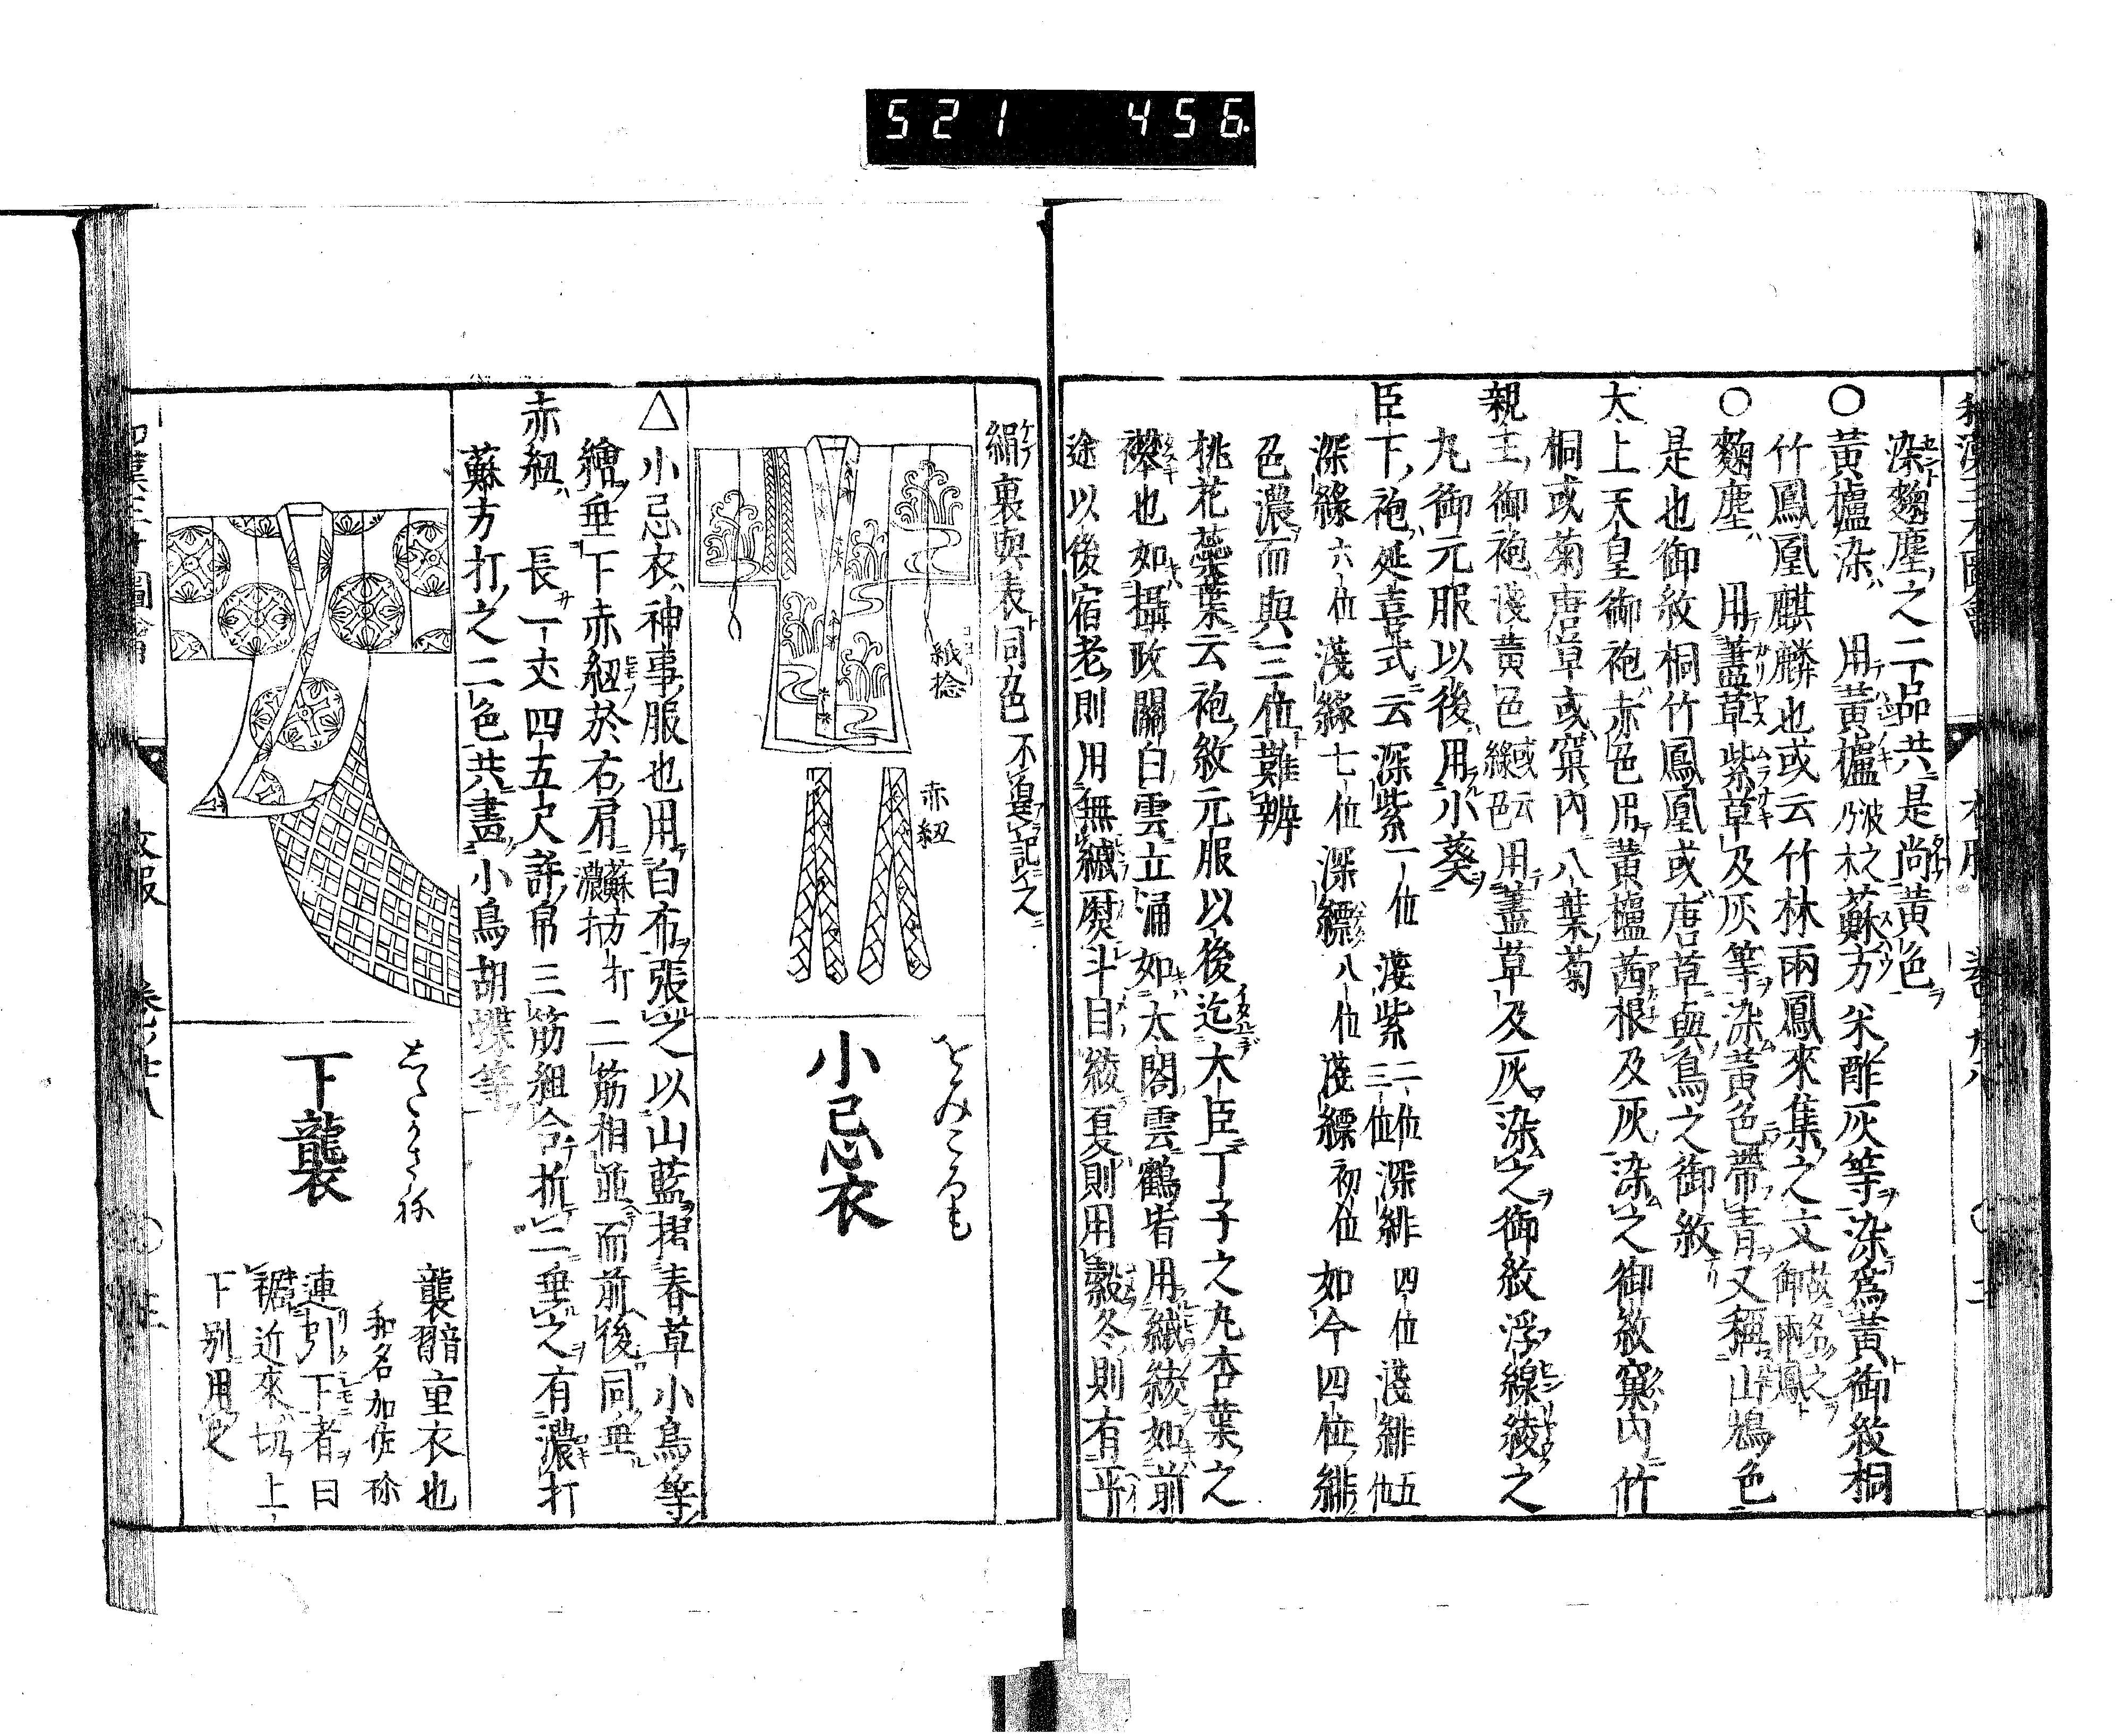 521 456.
染麴塵之二品共是尚黃色
○黃櫨染 用黃櫨波之乃木蘇方米酢灰等染爲黃御紋桐
竹鳳凰麒麟也或云竹林兩鳳來集之文故名之御兩鳳
○麴塵 用藎草紫草及灰等染黃色帶青又稱山鳩色
是也御紋桐竹鳳凰或唐草與鳥之御紋
太上天皇御袍赤色用黃櫨茜根及灰染之御紋窠内竹
桐或菊唐草或窠内八葉菊
親王御袍淺黃色或云綠色用藎草及灰染之御紋浮線綾之
丸御元服以後用小葵
臣下袍延喜式云深紫一位淺紫二位三位深緋四位淺緋五位
深綠六位淺綠七位深縹八位淺縹初位如今四位緋
色濃而與三位難辨
桃花蘂葉云袍紋元服以後迄大臣丁子之丸杏葉之
襷也如攝政關白雲立涌如太閤雲鶴皆用織綾如前
途以後宿老則用無紋熨斗目綾夏則用縠冬則有平
絹裏與表同色不遑記之
紙捻
赤紐
をみころも
小忌衣
△小忌衣神事服也用白布張之以山藍摺春草小鳥等
繪垂下赤紐於右肩蘇方濃打二筋相並而前後同垂
赤紐 長一丈四五尺許帛三筋組合折二垂之有濃打
蘇方打之二色共畫小鳥胡蝶等
志たかさね
下襲
襲音習重衣也
和名加佐祢
連引下者曰
裾近來切上
下別用之